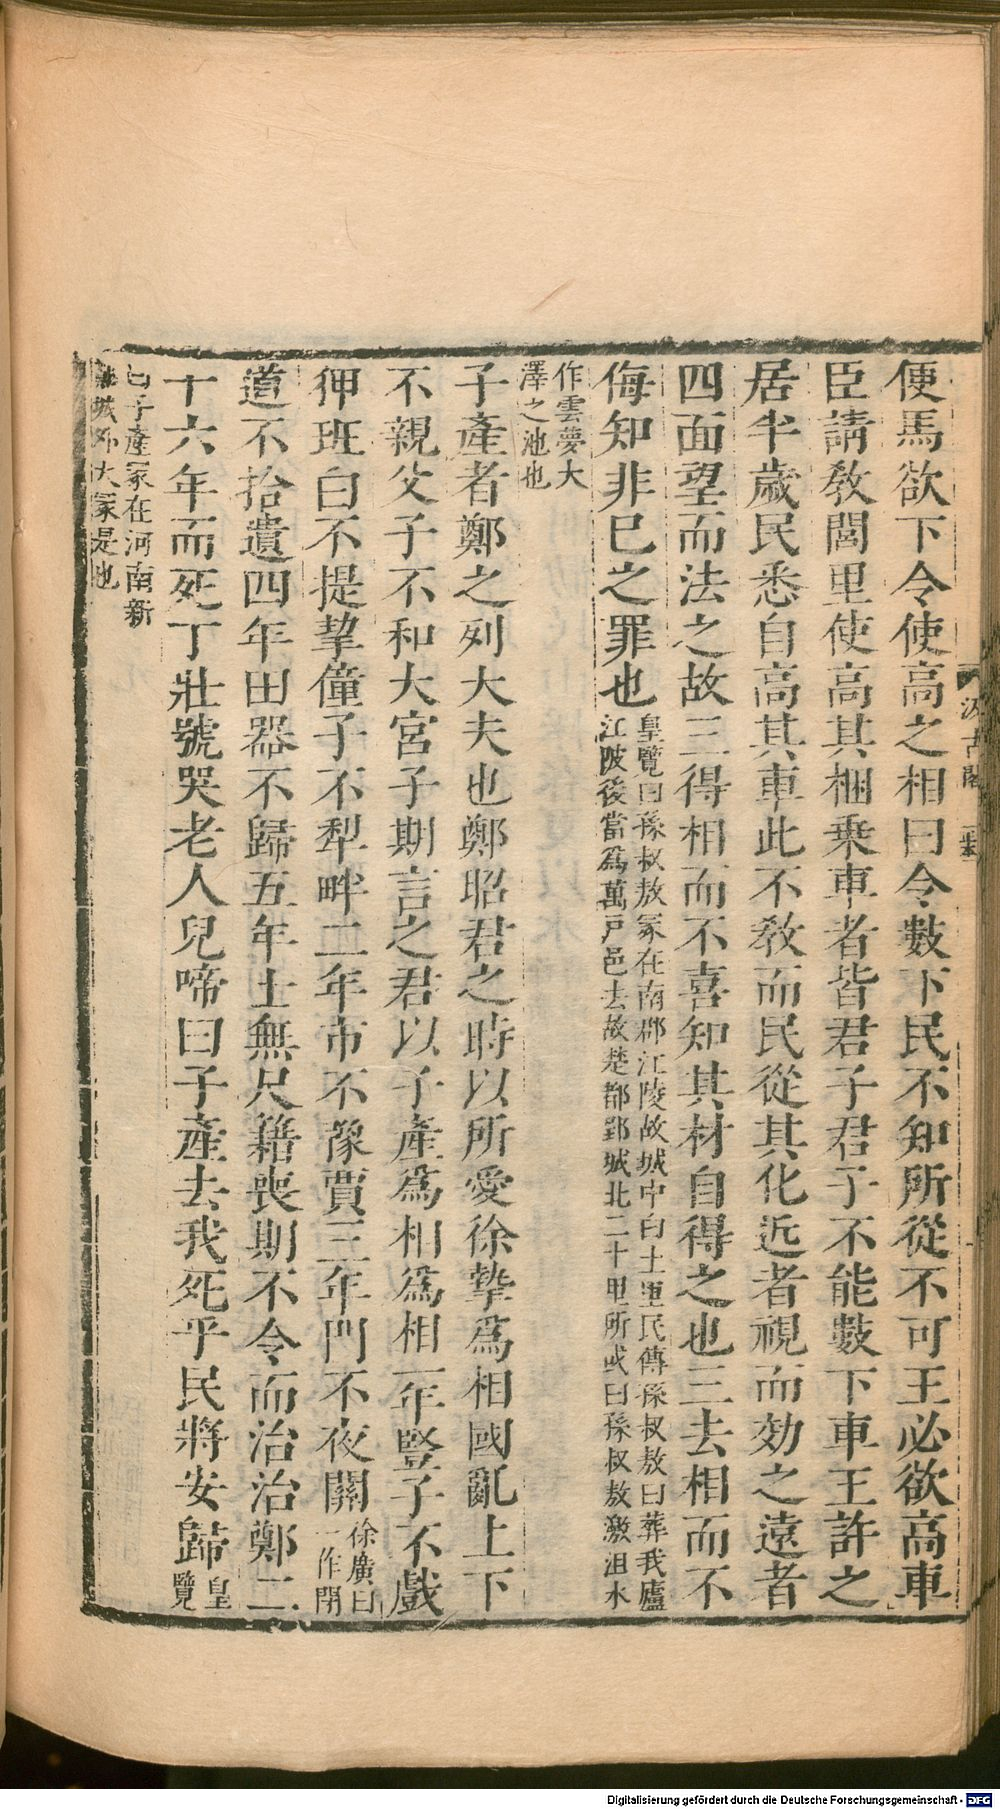 便馬欲下令使高之相曰令數下民不知所從不可王必欲高車
臣請敎閭里使高其梱乗車者皆君子君子不能數下車王許之
居半歲民悉自高其車此不敎而民從其化近者視而効之遠者
四面望而法之故三得相而不喜知其材自得之也三去相而不
侮知非巳之罪也皇覽曰孫叔敖冢在南郡江陵故城中白土里民傳孫叔敖曰葬我廬
江陂後當爲萬戸邑去故楚都郢城北二十里所或曰孫叔敖激沮水
作雲夢大
澤之池也
子產者鄭之列大夫也鄭昭君之時以所愛徐摯爲相國亂上下
不親父子不和大宮子期言之君以子產爲相爲相一年豎子不戲
狎班白不提挈僮子不犁畔二年市不豫賈三年門不夜關徐廣曰
一作閉
道不拾遺四年田器不歸五年士無尺籍喪期不令而治治鄭二
十六年而死丁壯號哭老人兒啼曰子產去我死乎民將安歸皇
覽
曰子產冢在河南新
城外大冢是也
汲古閣
Digitalisierung gefördert durch die Deutsche Forschungsgemeinschaft - DFG